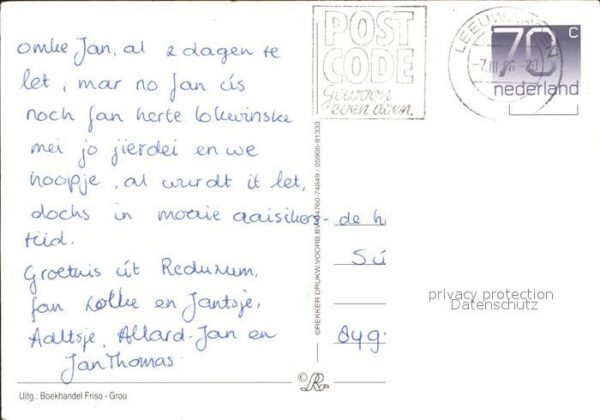 omke Jan, al 2 dagen te
let, mar no fan ús
noch fan herte lokwinske
mei jo jierdei en we
hoopje, al wurdt it let,
dochs in moaie aaisikers-
tiid.
Groetnis út Reduzum,
fan Lolke en Jantsje,
Aaltsje, Allard-Jan en
Jan Thomas.
Uitg.: Boekhandel Friso - Grou
©REKKER DRUKW.VOORB.BV 04760-74849 / 05905-91333
©R
POST
CODE
Gewoon
even doen.
LEEUWARDEN
-7.III.96-20
70 c
nederland
de h
Sú
8491
privacy protection
Datenschutz